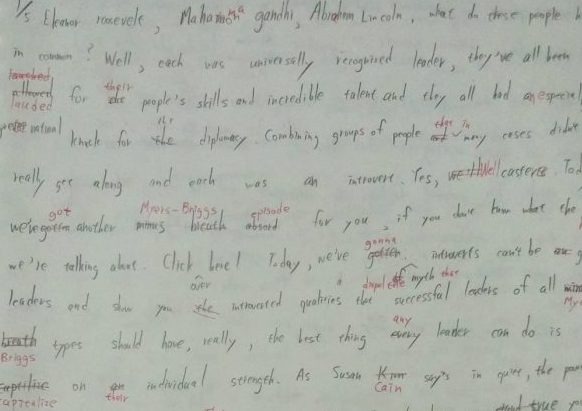 1/5 Eleanor roosevele, Mahatma gandhi, Abraham Lincoln, what do these people h
in common? Well, each was universally recognized leader, they've all been
lauded for their people's skills and incredible talent and they all had an especial
national knack for the diplomacy. Combining groups of people that in many cases didn't
really get along and each was an introvert. Yes, Well Tod
we've got another Myers-Briggs episode for you, if you don't know what the
we're talking about. Click here! Today, we've gonna dispel the myth that introverts can't be g
leaders and show you over the introverted qualities that successful leaders of all My
Briggs types should have, really, the best thing any leader can do is
capitalize on their individual strength. As Susan Cain say's in quiet, the pow
and true